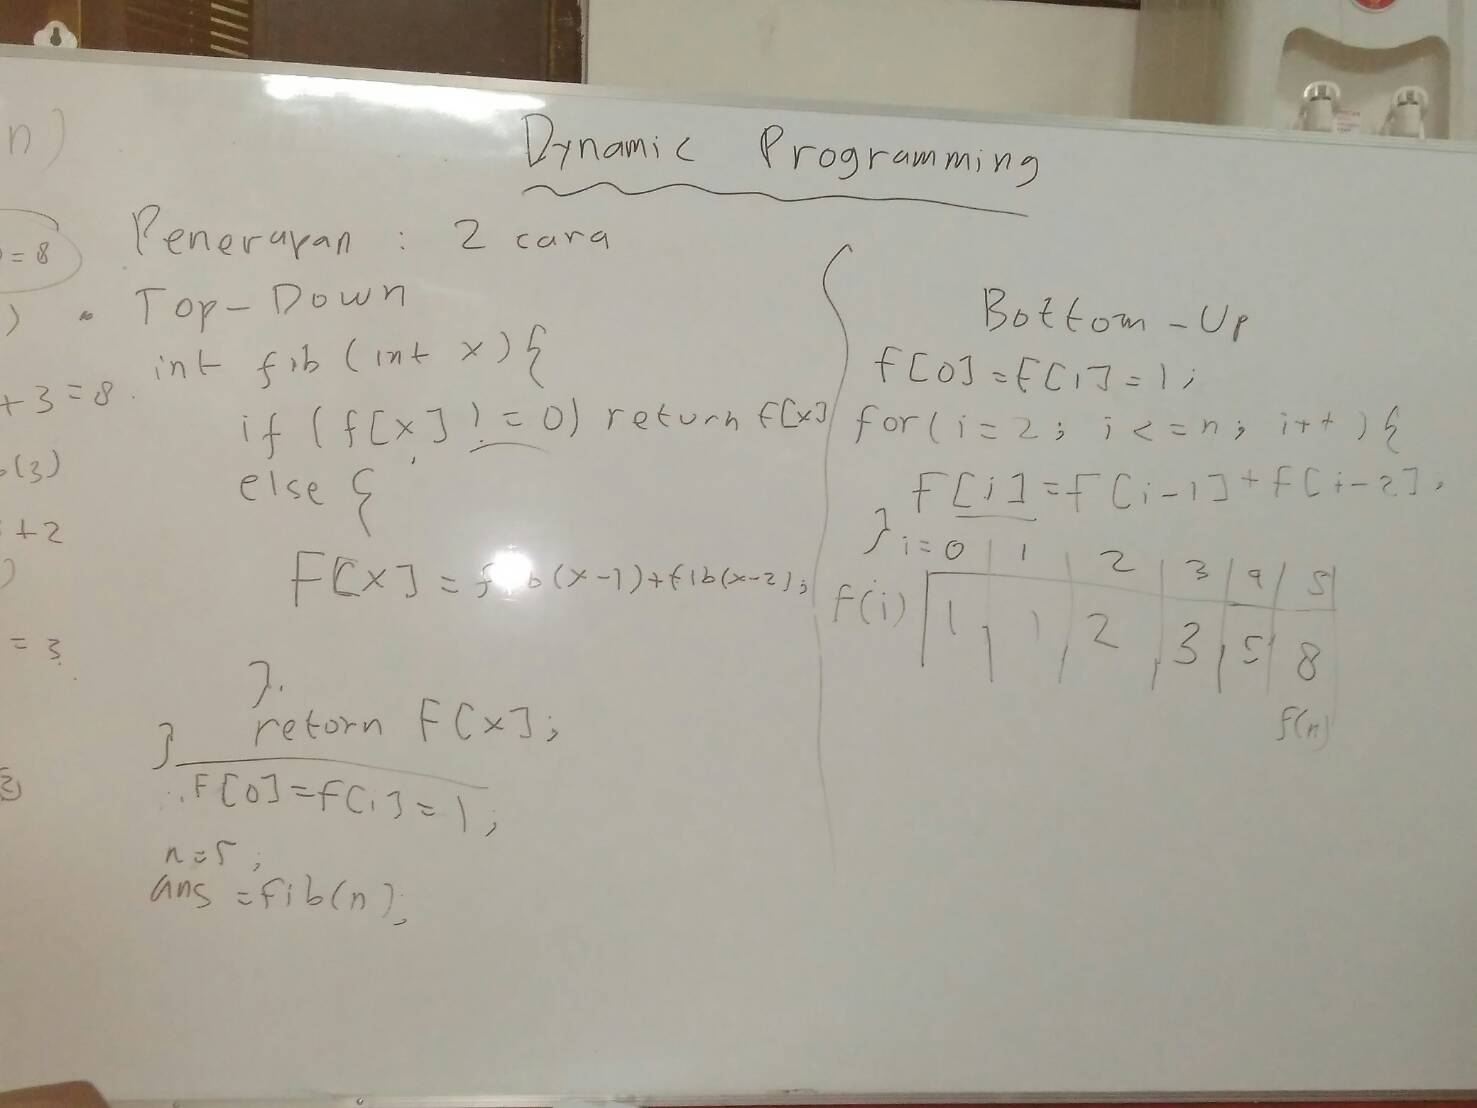 Dynamic Programming
n)
= 8
)
+ 3 = 8
(3)
+ 2
)
= 3
Penerapan : 2 cara
Top-Down
int fib (int x) {
if (f[x] != 0) return f[x]
else {
F[x] = fib(x-1)+fib(x-2);
}
return F[x];
}
F[0] = f[1] = 1;
n = 5;
ans = fib(n);
Bottom-Up
f[0] = f[1] = 1;
for( i = 2; i <= n; i++ ) {
F[i] = f[i-1] + f[i-2];
}
i = 0 1 2 3 4 5
f(i) 1 1 2 3 5 8
f(n)